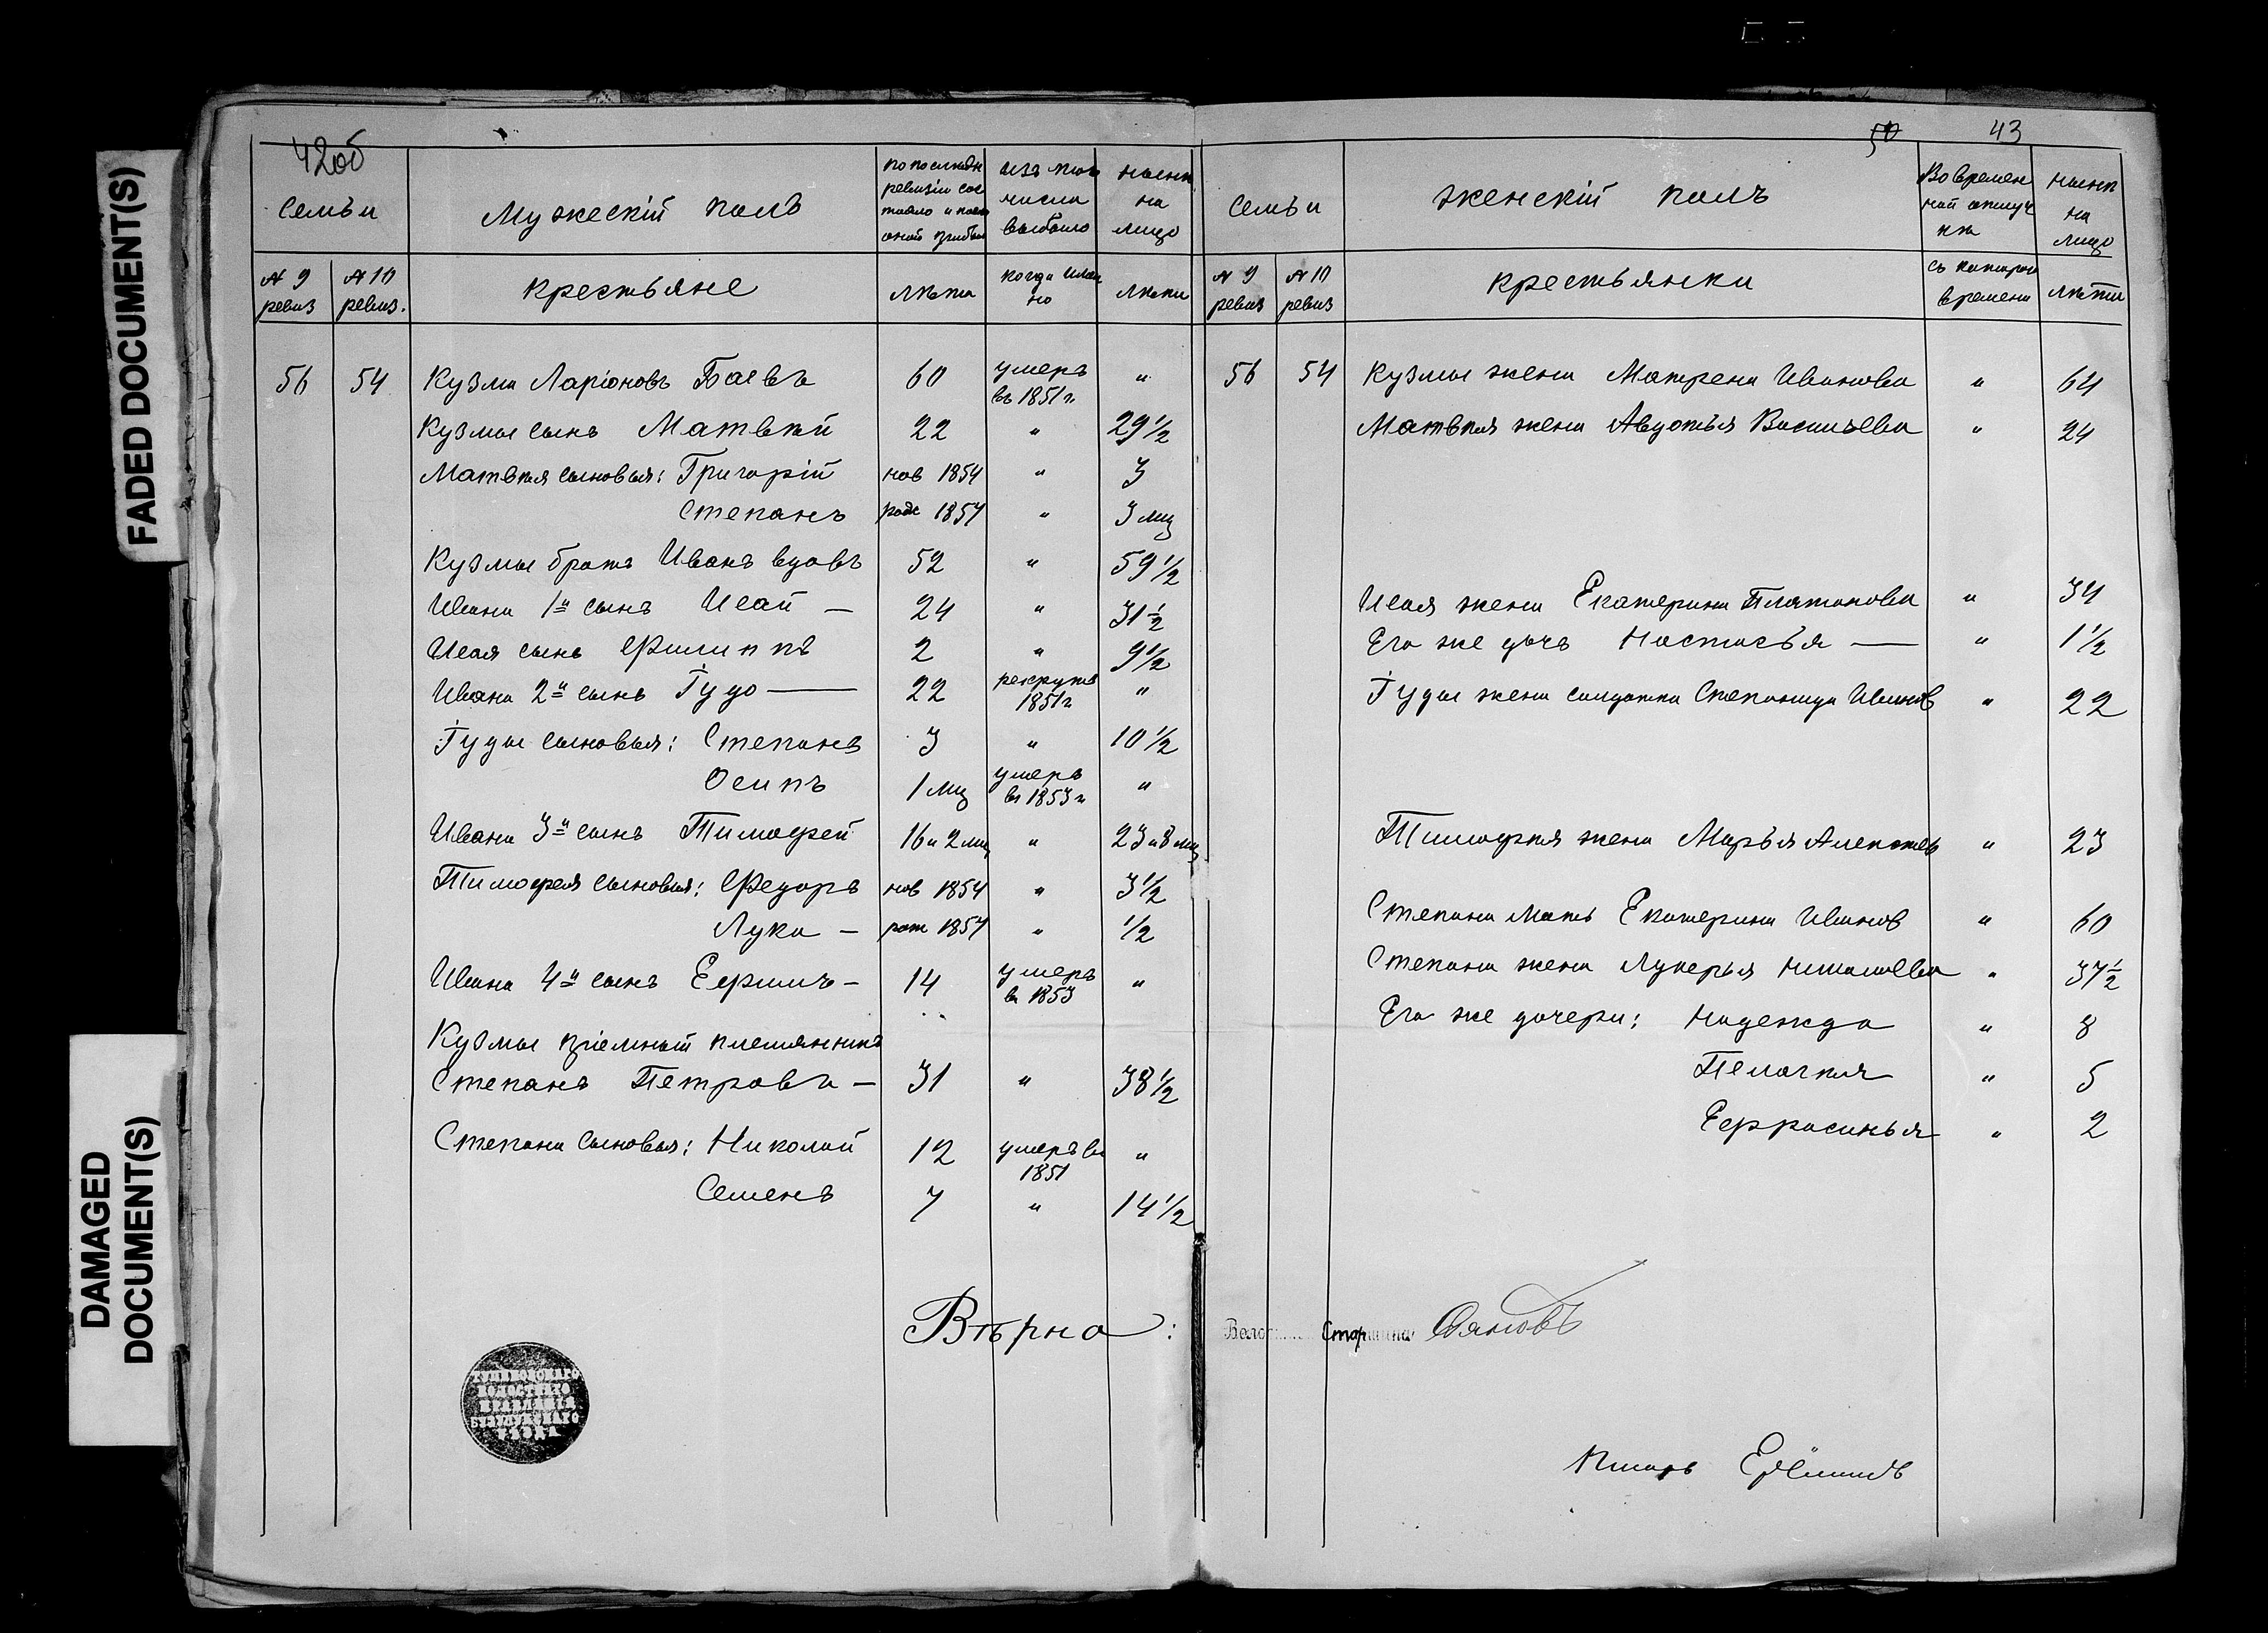 FADED DOCUMENT(S)
DAMAGED
DOCUMENT(S)
42об
Семьи
Мужескій полъ
по последн
ревизіи сос
тояло и посл
оной прибыл
изъ того
числа
выбыло
нынѣ
на
лицо
№ 9
ревиз
№ 10
ревиз.
крестьяне
лѣта
когда имен
но
лѣта
56 54 Кузма Ларіоновъ Баевъ 60 умеръ въ 1851 г. "
Кузмы сынъ Матвѣй 22 " 29 1/2
Матвѣя сыновья: Григорій нов 1854 " 3
Степанъ рож 1857 " 3 мц
Кузмы братъ Иванъ вдовъ 52 " 59 1/2
Ивана 1й сынъ Исай — 24 " 31 1/2
Исая сынъ Филиппъ 2 " 9 1/2
Ивана 2й сынъ Іуда — 22 рекрутъ 1851 г "
Іуды сыновья: Степанъ 3 " 10 1/2
Осипъ 1 мц умеръ въ 1853 г "
Ивана 3й сынъ Тимофей 16 и 2 мц " 23 и 8 мц
Тимофея сыновья: Федоръ нов 1854 " 3 1/2
Лука — рож 1857 " 1/2
Ивана 4й сынъ Ефимъ — 14 умеръ въ 1853 "
Кузмы пріемный племянникъ
Степанъ Петровъ — 31 " 38 1/2
Степана сыновья: Николай 12 умеръ въ 1851 "
Семенъ 7 " 14 1/2
Вѣрно:
ВОЛОСТНАГО
ПРАВЛЕНІЯ
БУЗУЛУКСКАГО
УѢЗДА
50
43
Семьи
Женскій полъ
Во времен
ной отлуч
кѣ
нынѣ
на
лицо
№ 9
ревиз
№ 10
ревиз
крестьянки
съ котораго
времени
лѣта
56 54 Кузмы жена Матрена Иванова " 64
Матвѣя жена Авдотья Васильева " 24
Исая жена Екатерина Платонова " 34
Его же дочь Настасья — " 1 1/2
Іуды жена солдатка Степанида Иванов " 22
Тимофѣя жена Марья Алексѣев " 23
Степана мать Екатерина Иванов " 60
Степана жена Лукерья Николаева " 37 1/2
Его же дочери: Надежда " 8
Пелагѣя " 5
Ефросинья " 2
Старшина
Писарь